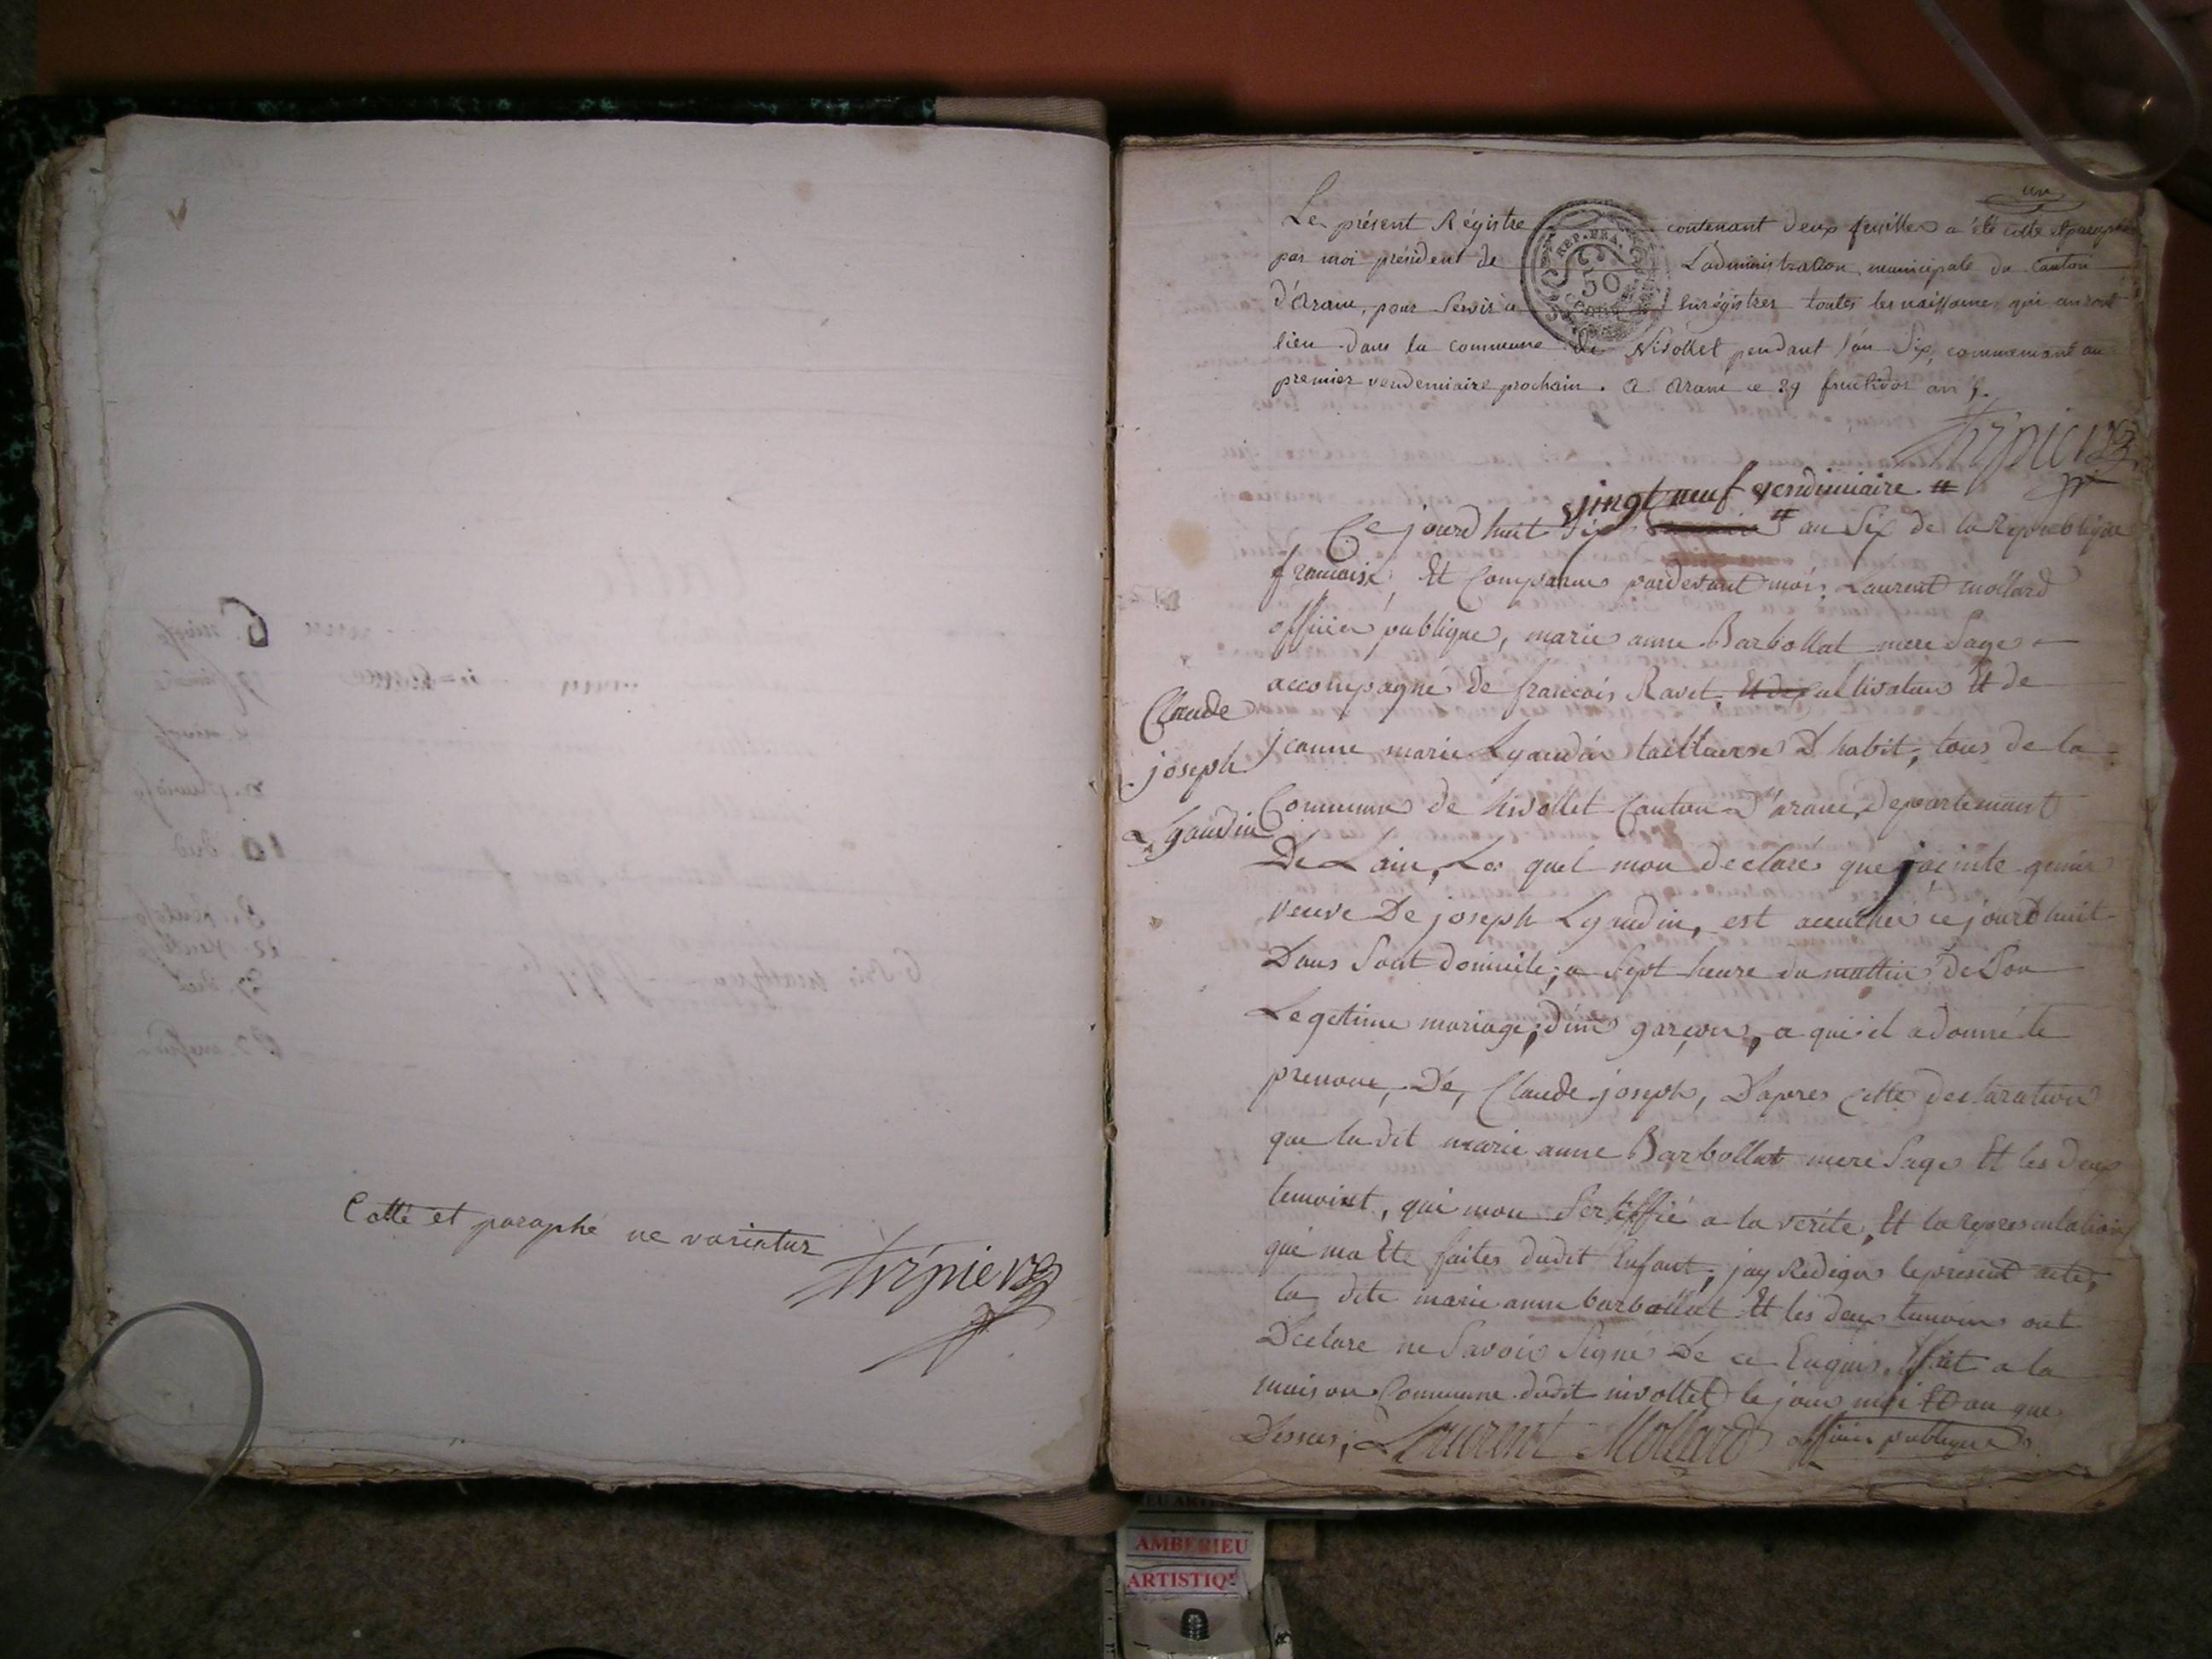 Cotté et paraphé ne varietur
un
Le présent Régistre contenant deux feuilles a été cotté et paraphé
par moi président de L'administration municipale du Canton
d'Arane, pour Servir a Enrégistrer toutes les naissances qui auront
lieu dans la commune de Nivollet pendant l'an Six, commencant au
premier vendemiaire prochain. a Arane ce 29 fructidor an 5.
REP. FRA.
50
vingt neuf vendimiaire
Ce jourd huit an Six de la Republique
francoise, Et Comparus pardevant moi, Laurent mollard
officier publique, marie anne Barbollat mere Sage
accompagné de francois Ravet, Et de Cultivateur Et de
jeanne marie Lgaudin tailleuse D habit, tous de la
Claude
joseph
Lgaudin
Commune de Nivollet Canton D'arane, departement
De Lain, Les quel mon declaré que
veuve De joseph Lgaudin, est acuchée ce jourd huit
Dans Sont domicile, a Sept heure du mattin De Son
Legetime mariage, d'un garçon, a qui il a donné le
prenom, De, Claude joseph, D'apres Cette declaration
que la dit marie anne Barbollat mere Sage Et les deux
temoint, qui mon Sertiffié a la verite, Et la representation
qui ma Ette faites dudit Enfant, jay Rediger le present acte,
la dite marie anne barbollat Et les deux temoins ont
Declare ne Savoir Signé De ce Enquis, ffait a la
maison Commune dudit nivollet le jour moi Et an que
Dessus, Laurent Mollard officier publique
AMBERIEU
ARTISTIQ